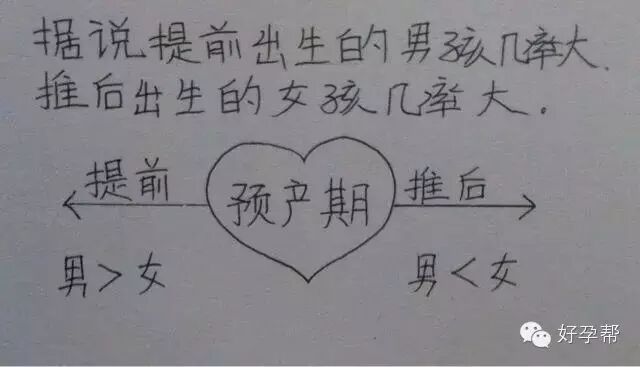 据说提前出生的男孩几率大.
推后出生的女孩几率大.
提前
预产期
推后
男>女
男<女
好孕帮